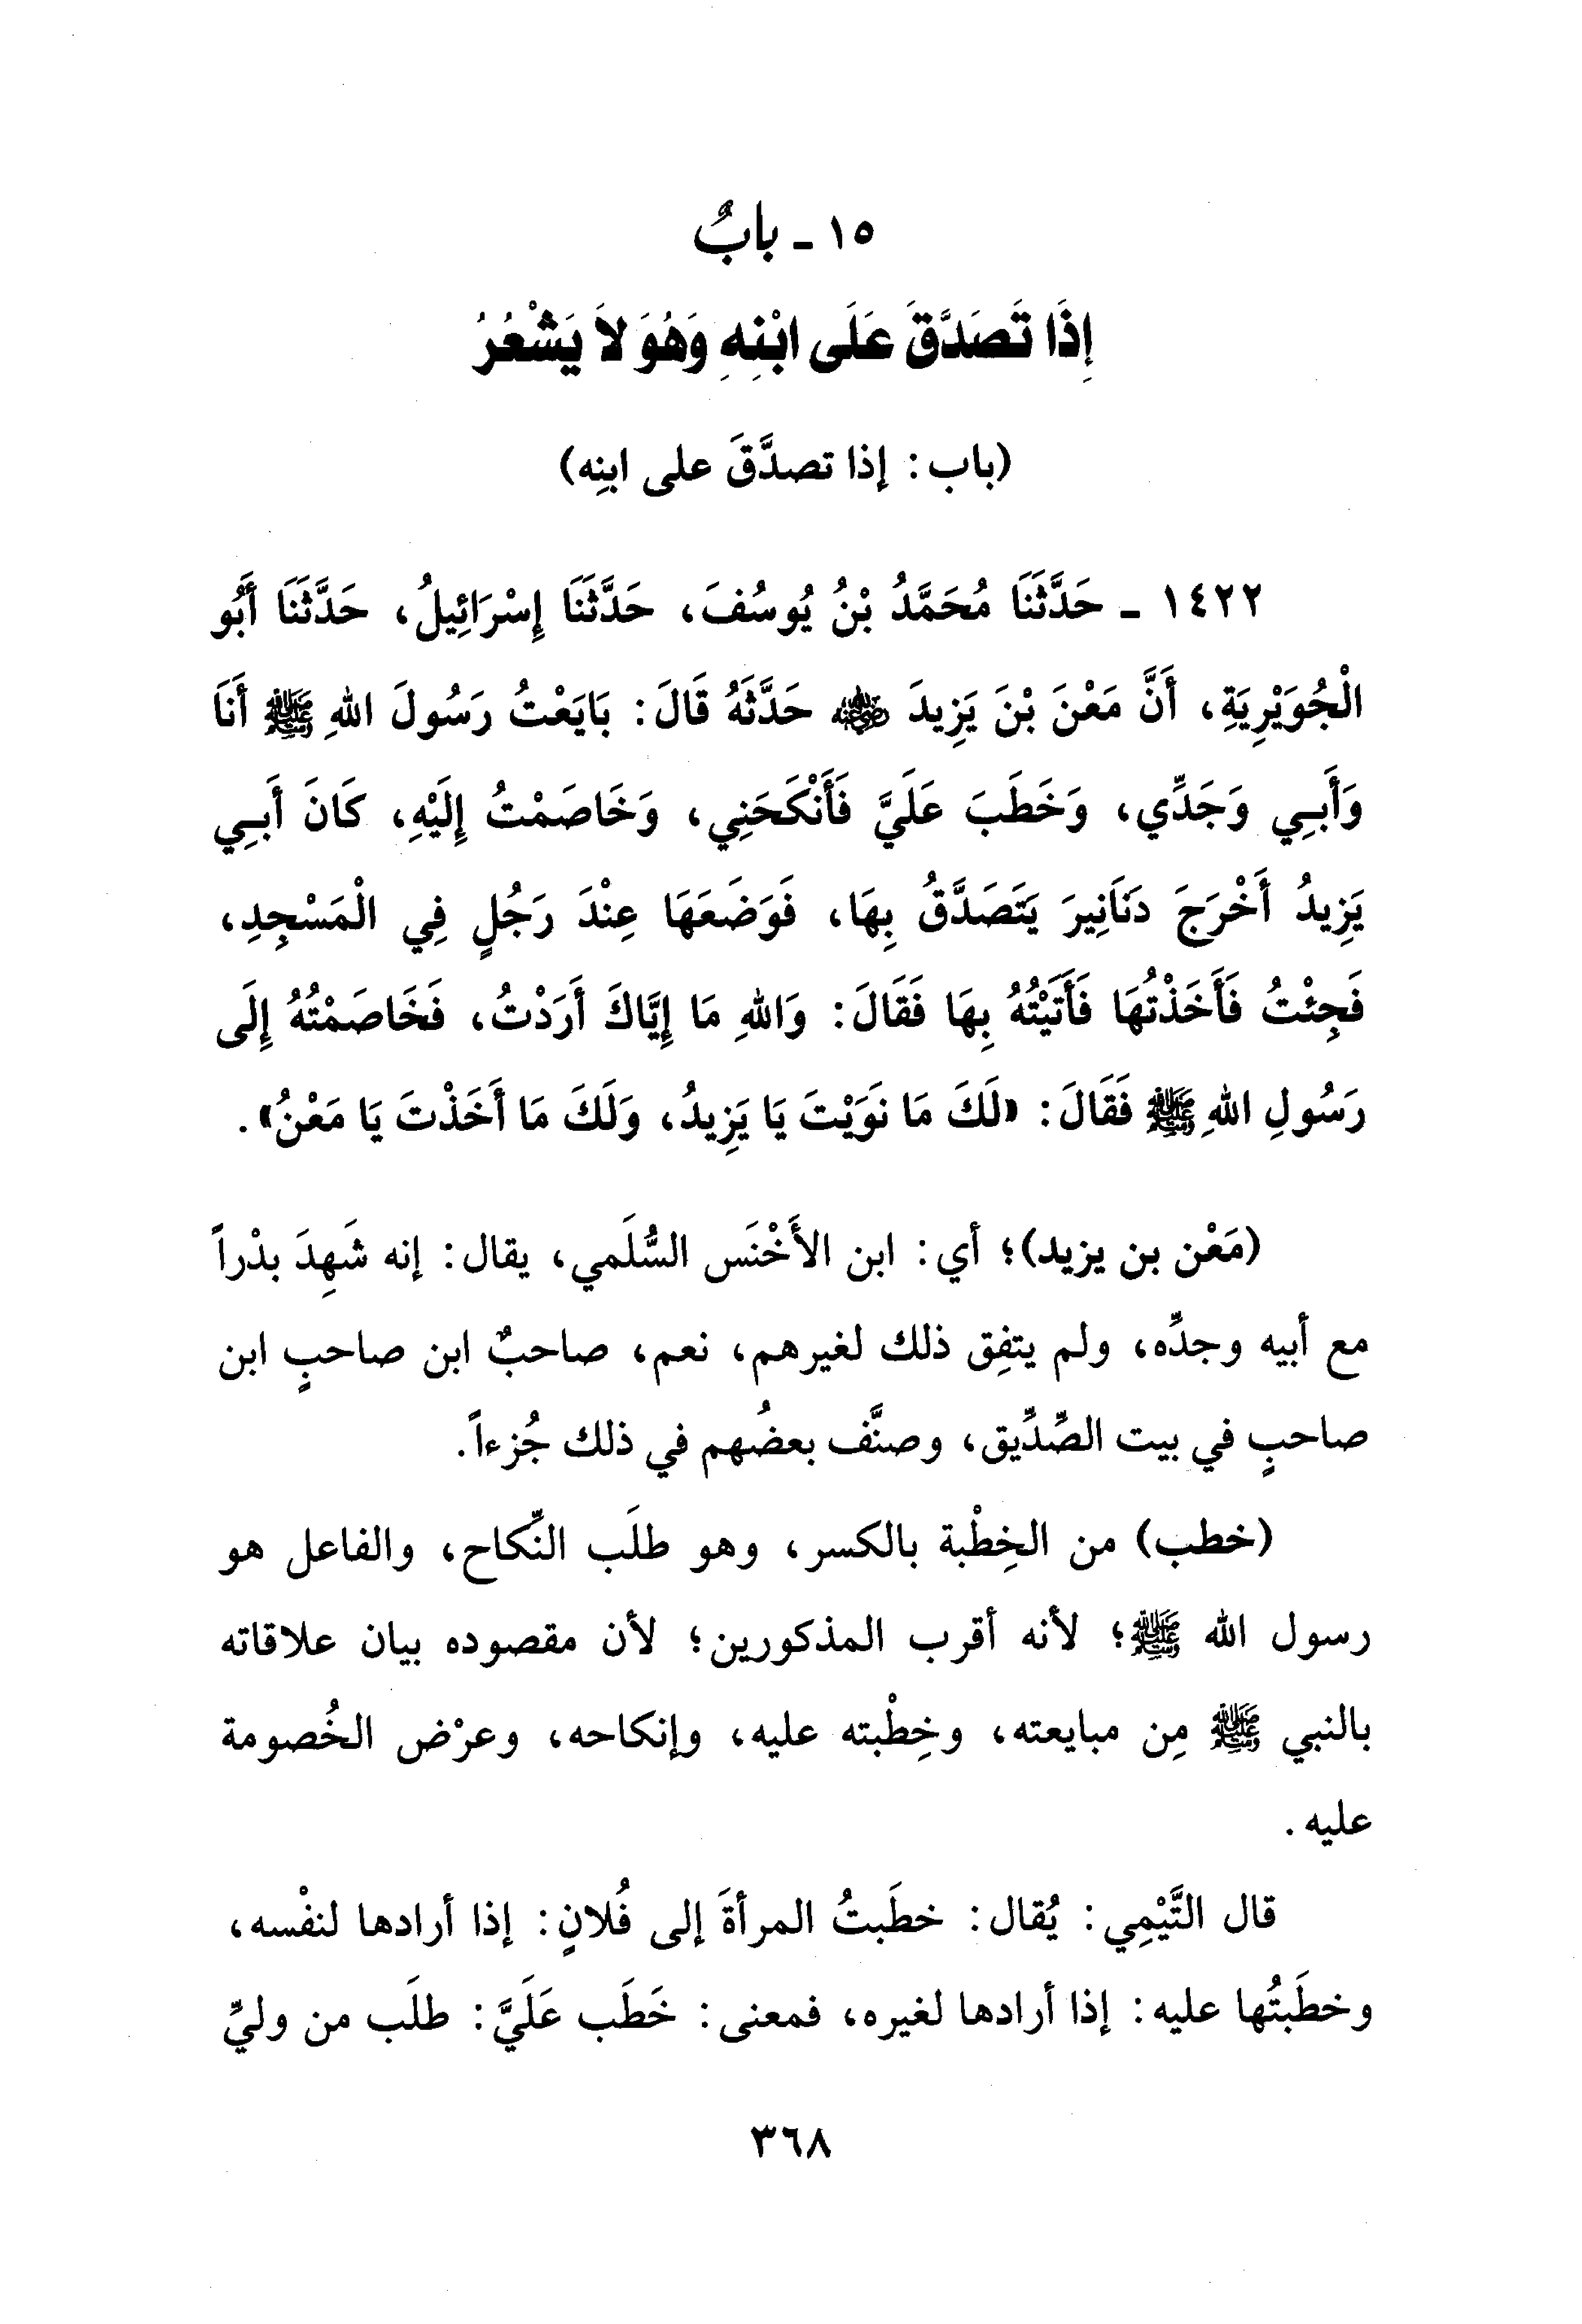 ١٥ ـ بابٌ
إِذَا تَصَدَّقَ عَلَى ابْنِهِ وَهُوَ لاَ يَشْعُرُ
(باب: إذا تصدَّقَ على ابنِه)
١٤٢٢ ـ حَدَّثَنَا مُحَمَّدُ بْنُ يُوسُفَ، حَدَّثَنَا إِسْرَائِيلُ، حَدَّثَنَا أَبُو
الْجُوَيْرِيَةِ، أَنَّ مَعْنَ بْنَ يَزِيدَ رضي الله عنه حَدَّثَهُ قَالَ: بَايَعْتُ رَسُولَ اللهِ ﷺ أَنَا
وَأَبِي وَجَدِّي، وَخَطَبَ عَلَيَّ فَأَنْكَحَنِي، وَخَاصَمْتُ إِلَيْهِ، كَانَ أَبِي
يَزِيدُ أَخْرَجَ دَنَانِيرَ يَتَصَدَّقُ بِهَا، فَوَضَعَهَا عِنْدَ رَجُلٍ فِي الْمَسْجِدِ،
فَجِئْتُ فَأَخَذْتُهَا فَأَتَيْتُهُ بِهَا فَقَالَ: وَاللهِ مَا إِيَّاكَ أَرَدْتُ، فَخَاصَمْتُهُ إِلَى
رَسُولِ اللهِ ﷺ فَقَالَ: «لَكَ مَا نَوَيْتَ يَا يَزِيدُ، وَلَكَ مَا أَخَذْتَ يَا مَعْنُ».
(مَعْن بن يزيد)؛ أي: ابن الأَخْنَس السُّلَمي، يقال: إنه شَهِدَ بدْراً
مع أبيه وجدِّه، ولم يتفِق ذلك لغيرهم، نعم، صاحبٌ ابن صاحبٍ ابن
صاحبٍ في بيت الصِّدِّيق، وصنَّف بعضُهم في ذلك جُزءاً.
(خطب) من الخِطْبة بالكسر، وهو طلَب النِّكاح، والفاعل هو
رسول الله ﷺ؛ لأنه أقرب المذكورين؛ لأن مقصوده بيان علاقاته
بالنبي ﷺ مِن مبايعته، وخِطْبته عليه، وإنكاحه، وعرْض الخُصومة
عليه.
قال التَّيْمِي: يُقال: خطَبتُ المرأةَ إلى فُلانٍ: إذا أرادها لنفْسه،
وخطَبتُها عليه: إذا أرادها لغيره، فمعنى: خَطَب عَلَيَّ: طلَب من وليِّ
٣٦٨